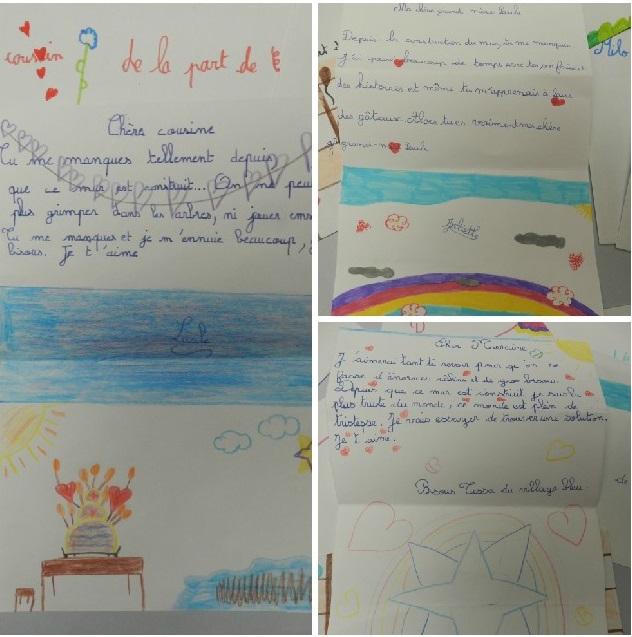 cousin
de la part de
Chère cousine
Tu me manques tellement depuis
que ce mur est construit... On ne peu
plus grimper dans les arbres, ni jouer
Tu me manques et je m'ennuie beaucoup,
bisous. Je t'aime
Laula
Ma chère grand mère Laula
Depuis la construction du mur, tu me manques
beaucoup de temps avec toi, on
des histoires et même tu m'apprenais à faire
des gâteaux. Alors tu es vraiment ma chère
grand-mère Laula
Juliette
Milo
Cher
J'aimerai tant te revoir pour qu'on se
fasse d'énormes câlins et de gros bisous.
Depuis que ce mur est construit je suis la
plus triste du monde, ce monde est plein de
tristesse. Je vais essayer de trouver une solution.
Je t'aime.
Bisous Tessa du village bleu